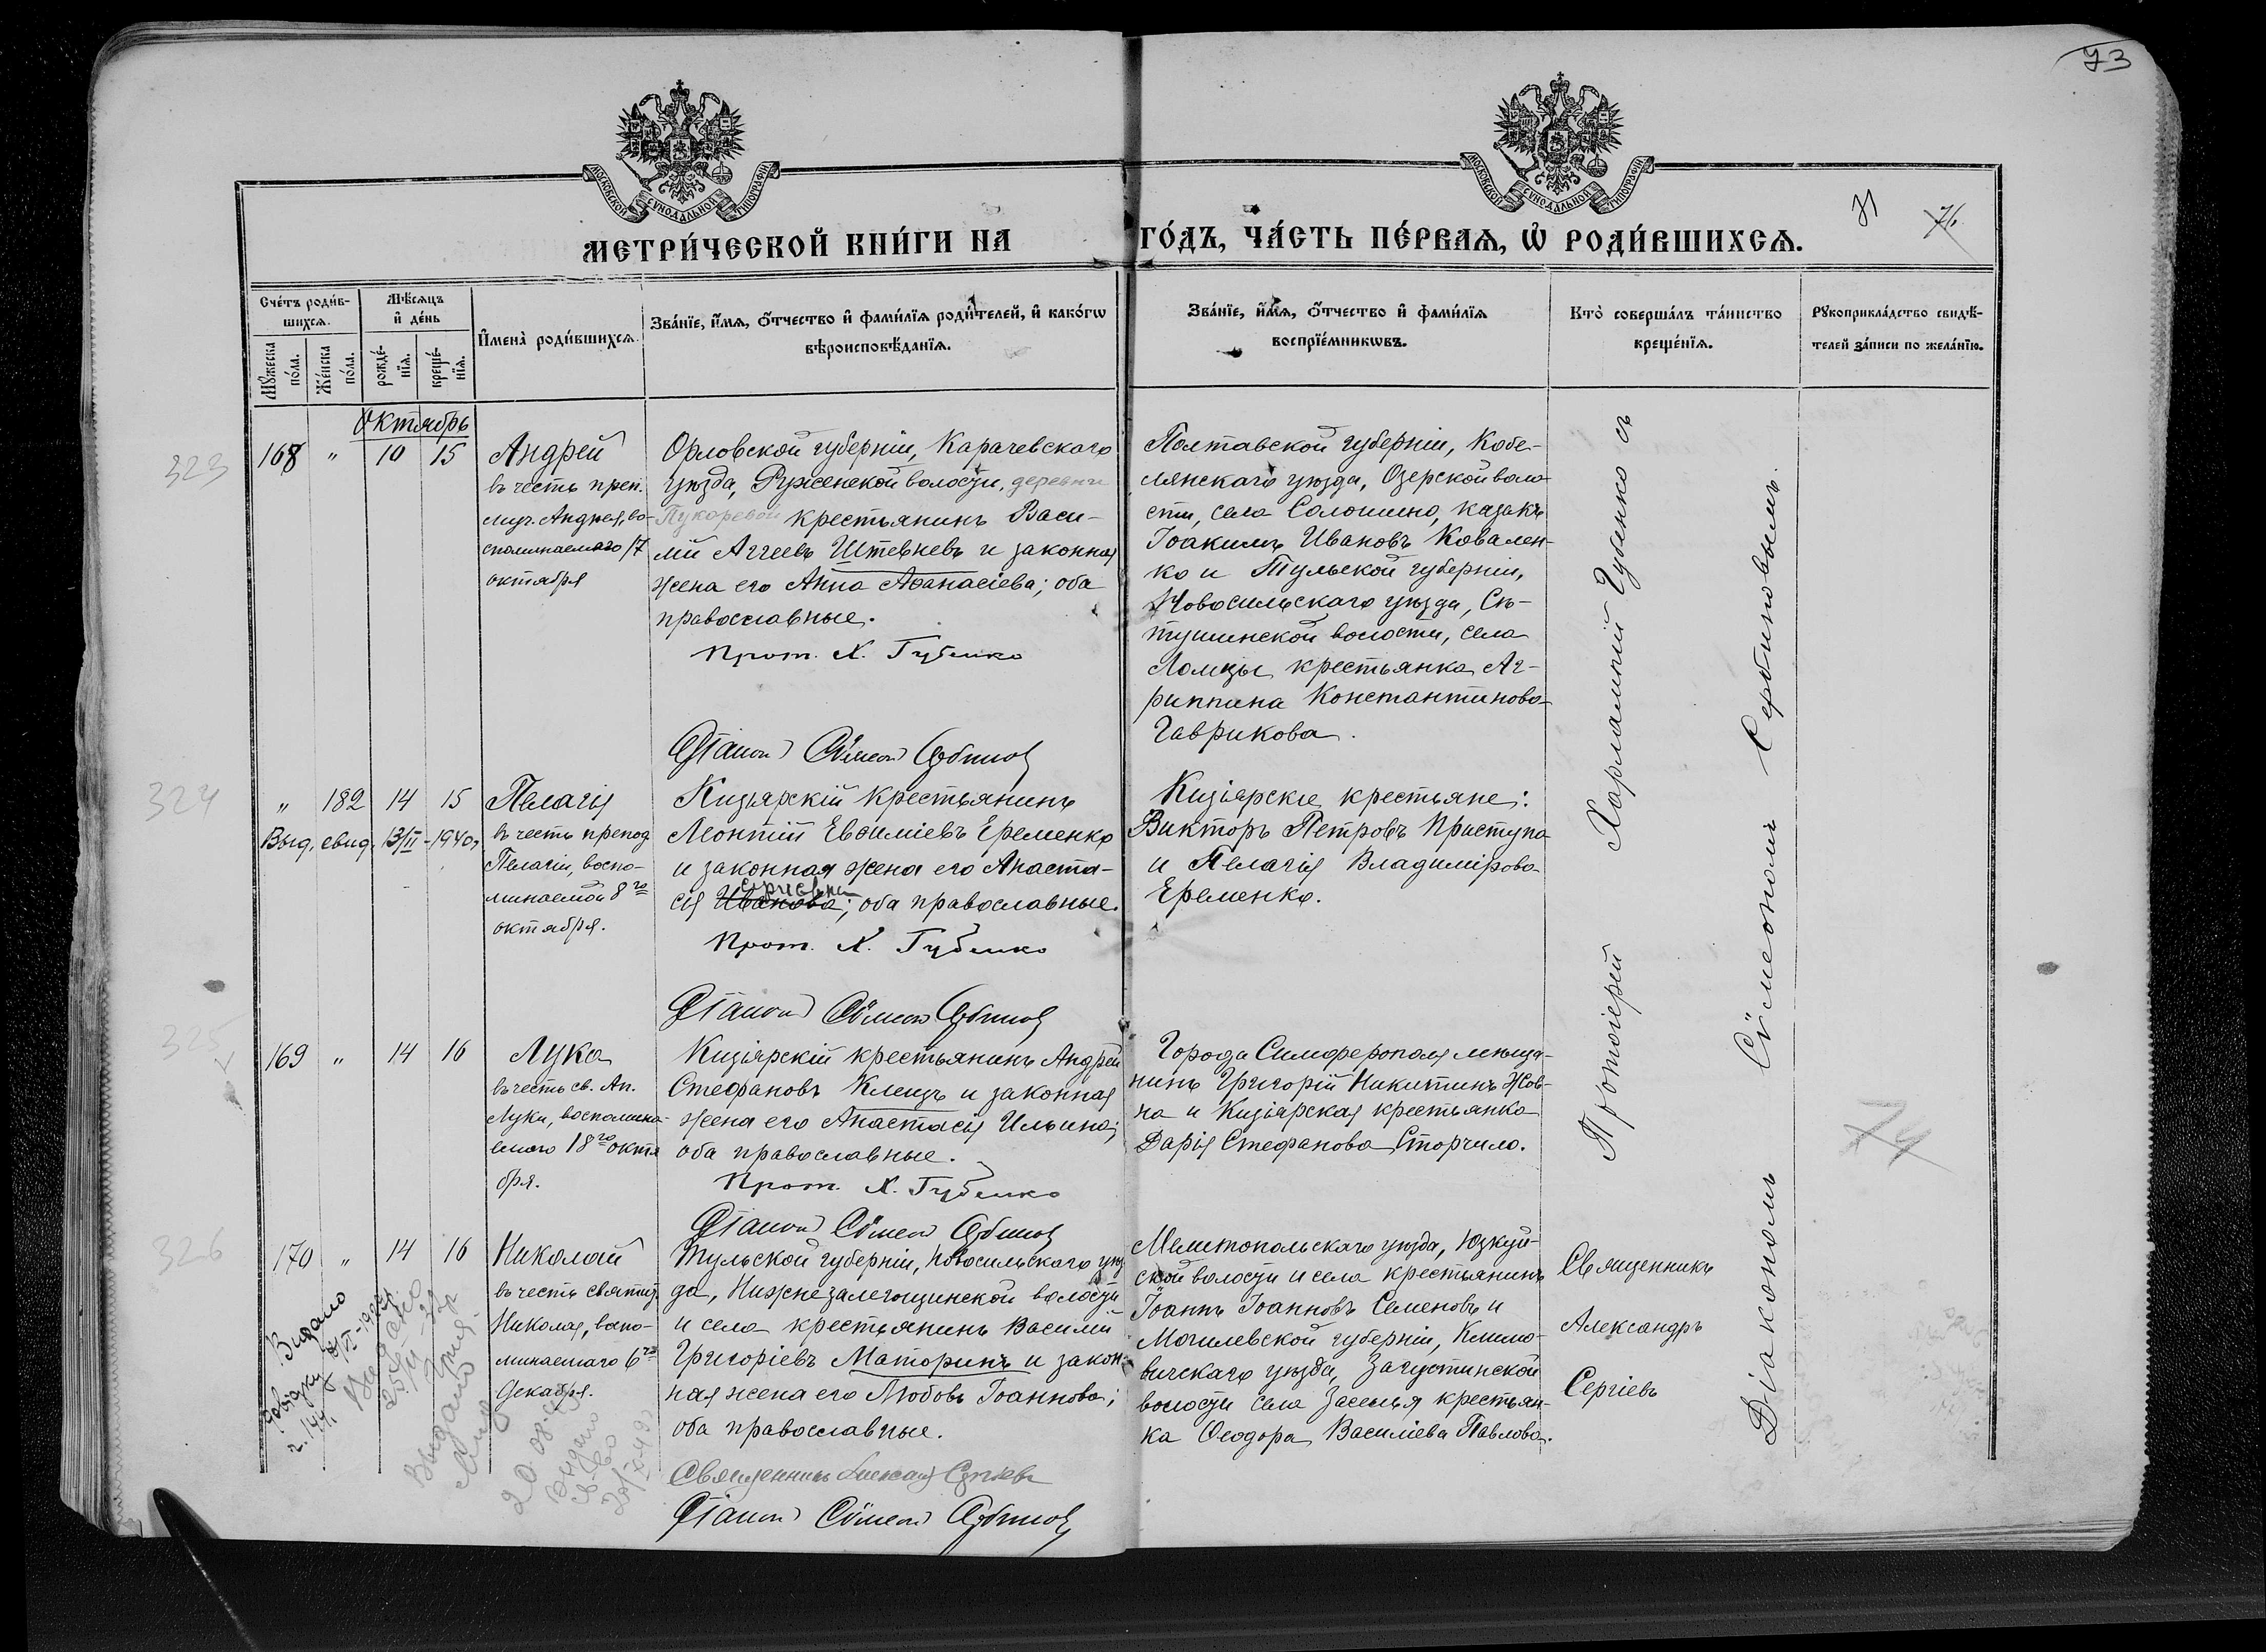 73
71
76
МОСКОВСКОЙ СѴНОДАЛЬНОЙ ТИПОГРАФІИ
МОСКОВСКОЙ СѴНОДАЛЬНОЙ ТИПОГРАФІИ
МЕТРИ́ЧЕСКОЙ КНИ́ГИ НА ГО́ДЪ, ЧА́СТЬ ПЕ́РВАЯ, Ѡ РОДИ́ВШИХСЯ.
Сче́тъ роди́в-
шихся.
Му́жеска
по́ла.
Же́нска
по́ла.
Мѣ́сяцъ
и де́нь
рожде́-
нїя.
креще́-
нїя.
Имена̀ роди́вшихся.
Зва́нїе, и́мя, о́тчество и фами́лїя роди́телей, и како́гѡ
вѣроисповѣ́данїя.
Зва́нїе, и́мя, о́тчество и фами́лїя
воспрїе́мникѡвъ.
Кто̀ соверша́лъ та́инство
креще́нїя.
Рукоприкла́дство свидѣ́-
телей за́писи по жела́нїю.
Октябрь
323
168 " 10 15
Андрей
въ честь преп.
муч. Андрея, во-
споминаемаго 17
октября
Орловской губерніи, Карачевскаго
уѣзда, Руженской волости, деревни
Пукаревой крестьянинъ Васи-
лій Аггеевъ Штевневъ и законная
жена его Анна Аѳанасіева; оба
православные.
Прот. Х. Губенко
Діаконъ Сѵмеонъ Сербиновъ
Полтавской губерніи, Кобе-
лянскаго уѣзда, Озерской воло-
сти, села Солошино, казакъ
Іоакимъ Ивановъ Ковален-
ко и Тульской губерніи,
Новосильскаго уѣзда, Сѣ-
тушинской волости, села
Ломцы крестьянка Аг-
риппина Константинова
Гаврикова.
324
" 182 14 15
Выд. свид. 13/II-1940г
Пелагія
въ честь препод.
Пелагіи, воспо-
минаемой 8го
октября.
Кизіярскій крестьянинъ
Леонтій Евѳиміевъ Еременко
и законная жена его Анаста-
сія Иванова; оба православные.
Прот. Х. Губенко
Діаконъ Сѵмеонъ Сербиновъ
Кизіярскіе крестьяне:
Викторъ Петровъ Приступа
и Пелагія Владимірова
Еременко.
325
169 " 14 16
Лука
въ честь св. Ап.
Луки, воспомина-
емаго 18го октя
бря.
Кизіярскій крестьянинъ Андрей
Стефановъ Клещъ и законная
жена его Анастасія Ильина;
оба православные.
Прот. Х. Губенко
Діаконъ Сѵмеонъ Сербиновъ
Города Симферополя мѣща-
нинъ Григорій Никитинъ Жов-
на и Кизіярская крестьянка
Дарія Стефанова Сторчило.
74
326
170 " 14 16
Николай
въ честь святит.
Николая, воспо-
минаемаго 6го
Декабря.
Тульской губерніи, Новосильскаго уѣз
да, Нижнезалегощинской волости
и села крестьянинъ Василій
Григоріевъ Маторинъ и закон-
ная жена его Любовь Іоаннова;
оба православные.
Священникъ Александръ Сергіевъ
Діаконъ Сѵмеонъ Сербиновъ
Мелитопольскаго уѣзда, Юзкуй-
ской волости и села крестьянинъ
Іоаннъ Іоанновъ Семеновъ и
Могилевской губерніи, Климо-
вичскаго уѣзда, Загустинской
волости села Заселья крестьян-
ка Ѳеодора Василіева Павлова.
Священникъ
Александръ
Сергіевъ
Протоіерей Харлампій Губенко съ
Діакономъ Сѵмеономъ Сербиновымъ.
Видано
Видано